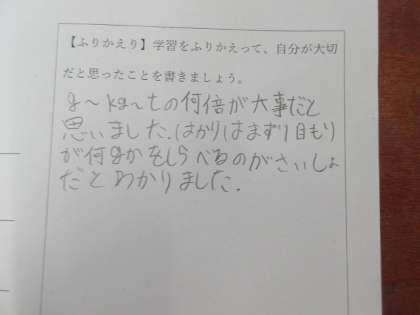 【ふりかえり】学習をふりかえって、自分が大切
だと思ったことを書きましょう。
g～kg～tの何倍が大事だと
思いました。はかりはまず1目もり
が何gかをしらべるのがさいしょ
だとわかりました。